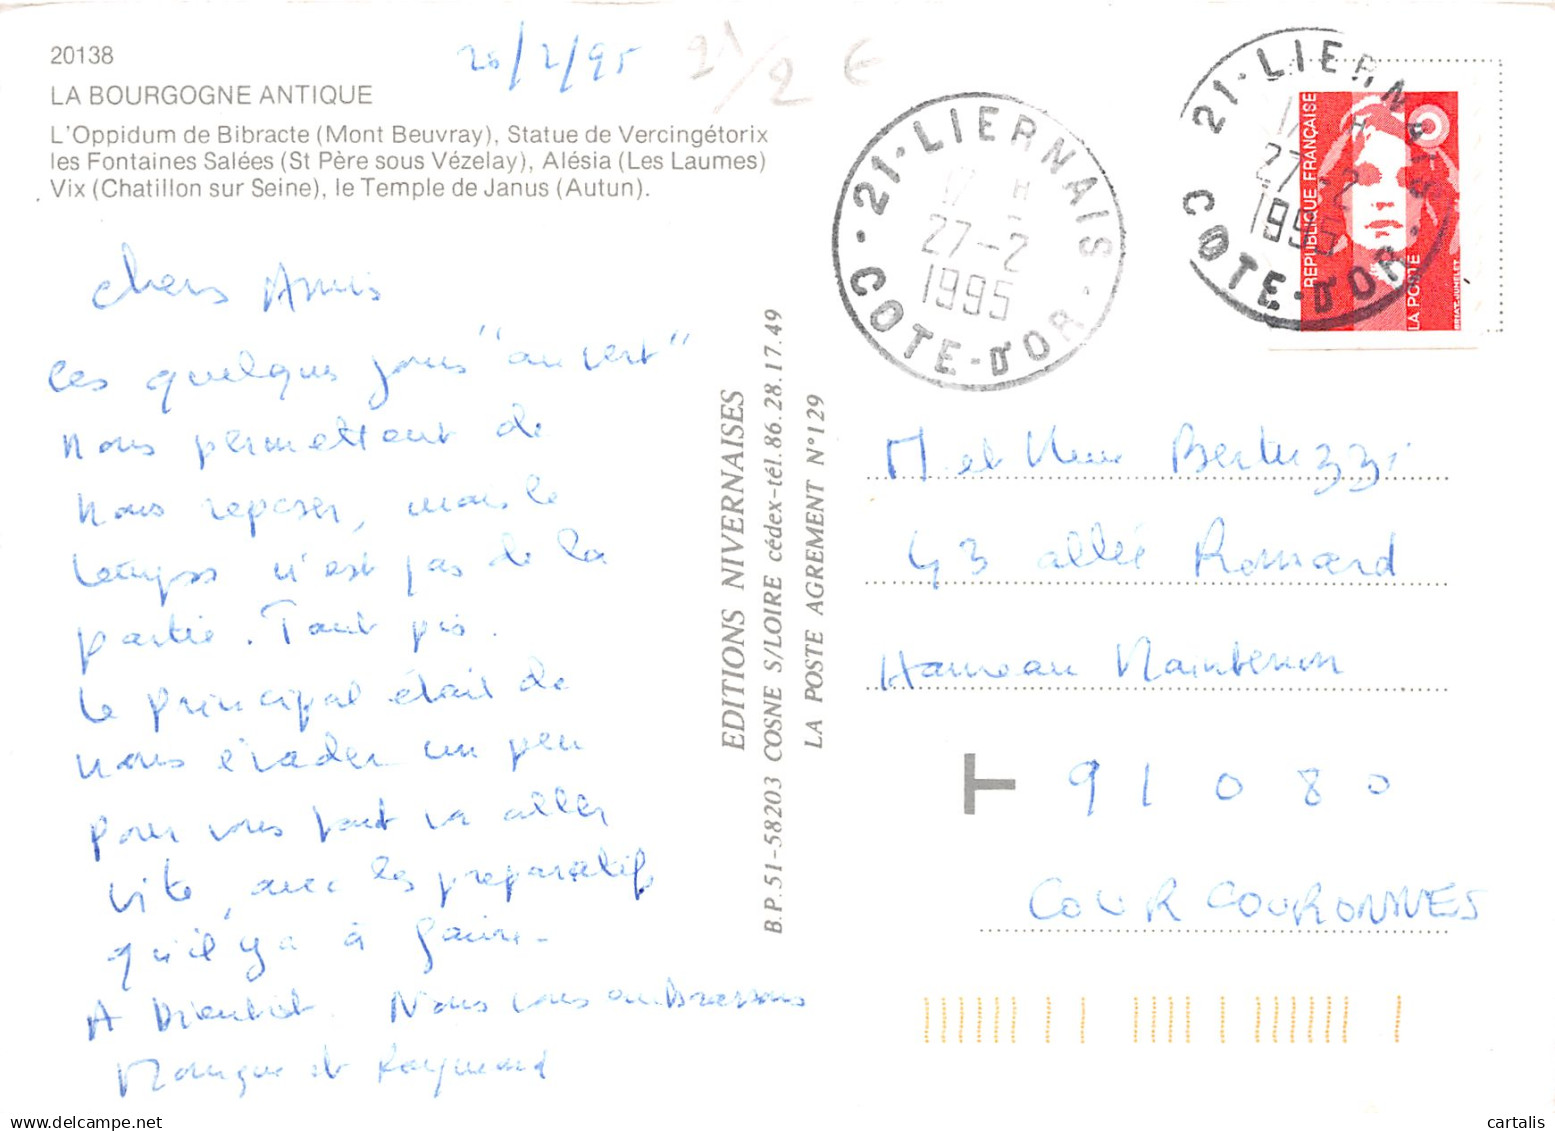 20138
LA BOURGOGNE ANTIQUE
L'Oppidum de Bibracte (Mont Beuvray), Statue de Vercingétorix
les Fontaines Salées (St Père sous Vézelay), Alésia (Les Laumes)
Vix (Chatillon sur Seine), le Temple de Janus (Autun).
2 €
chers Amis
ces quelques jours "au vert"
nous permettent de
nous reposer, mais le
temps n'est pas de la
partie. Tant pis.
Le principal était de
nous évader un peu
pour vous tout va aller
vite, avec les préparatifs
qu'il y a à faire.
A bientôt. Nous vous embrassons
et Raymond
EDITIONS NIVERNAISES
B.P.51-58203 COSNE S/LOIRE cédex-tél.86.28.17.49
LA POSTE AGREMENT N°129
21·LIERNAIS
27-2
1995
COTE-D'OR
21·LIERNAIS
27-2
1995
COTE-D'OR
REPUBLIQUE FRANÇAISE
LA POSTE
BRIAT-JUMELET
M et Mme Bertuzzi
43 allée Ronsard
Hameau Maintenon
91080
COURCOURONNES
cartalis